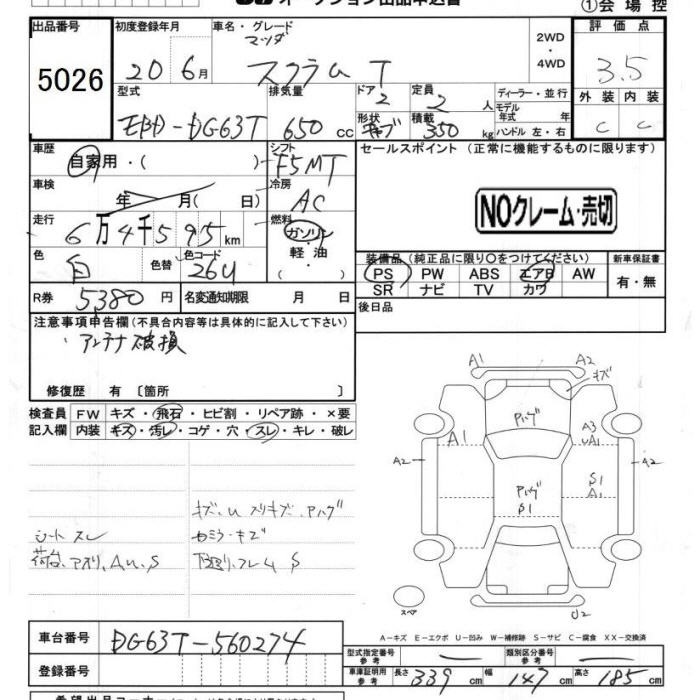 オークション出品申込書
①会場控
出品番号
5026
初度登録年月
20 6月
車名・グレード
マツダ
スクラム T
2WD・4WD
評価点
3.5
型式
EBD-DG63T
排気量
650 cc
ドア
2
形状
定員
2 人
積載
350 kg
ディーラー・並行
モデル年式 年
ハンドル 左・右
外装 内装
C C
車歴
自家用・( )
シフト
F5MT
セールスポイント(正常に機能するものに限ります)
車検
年 月( 日)
冷房
AC
NOクレーム・売切
走行
6万4千595km
燃料
ガソリン
軽油
・( )
色
白
色替
色コード
26U
装備品(純正品に限り○をつけてください)
新車保証書
PS PW ABS エアB AW
SR ナビ TV カワ
有・無
R券
5380円
名変通知期限 月 日
後日品
注意事項申告欄(不具合内容等は具体的に記入して下さい)
アンテナ破損
修復歴 有 〔箇所 〕
検査員 FW キズ・飛石・ヒビ割・リペア跡・×要
記入欄 内装 キズ・汚レ・コゲ・穴・スレ・キレ・破レ
シートスレ
荷台、アオリ、A、U、S
キズ、U スリキズ、アハゲ
下回り、フレーム S
A1 A2
キズ
Pハゲ
A1
A3
UA1
A2
A2
S1
A1
Pハゲ
S1
スペア
U2
A-キズ E-エクボ U-凹み W-補修跡 S-サビ C-腐食 XX-交換済
車台番号
DG63T-560274
登録番号
型式指定番号
参考
類別区分番号
参考
車庫証明用
参考
長さ 339 cm 幅 147 cm 高さ 185 cm